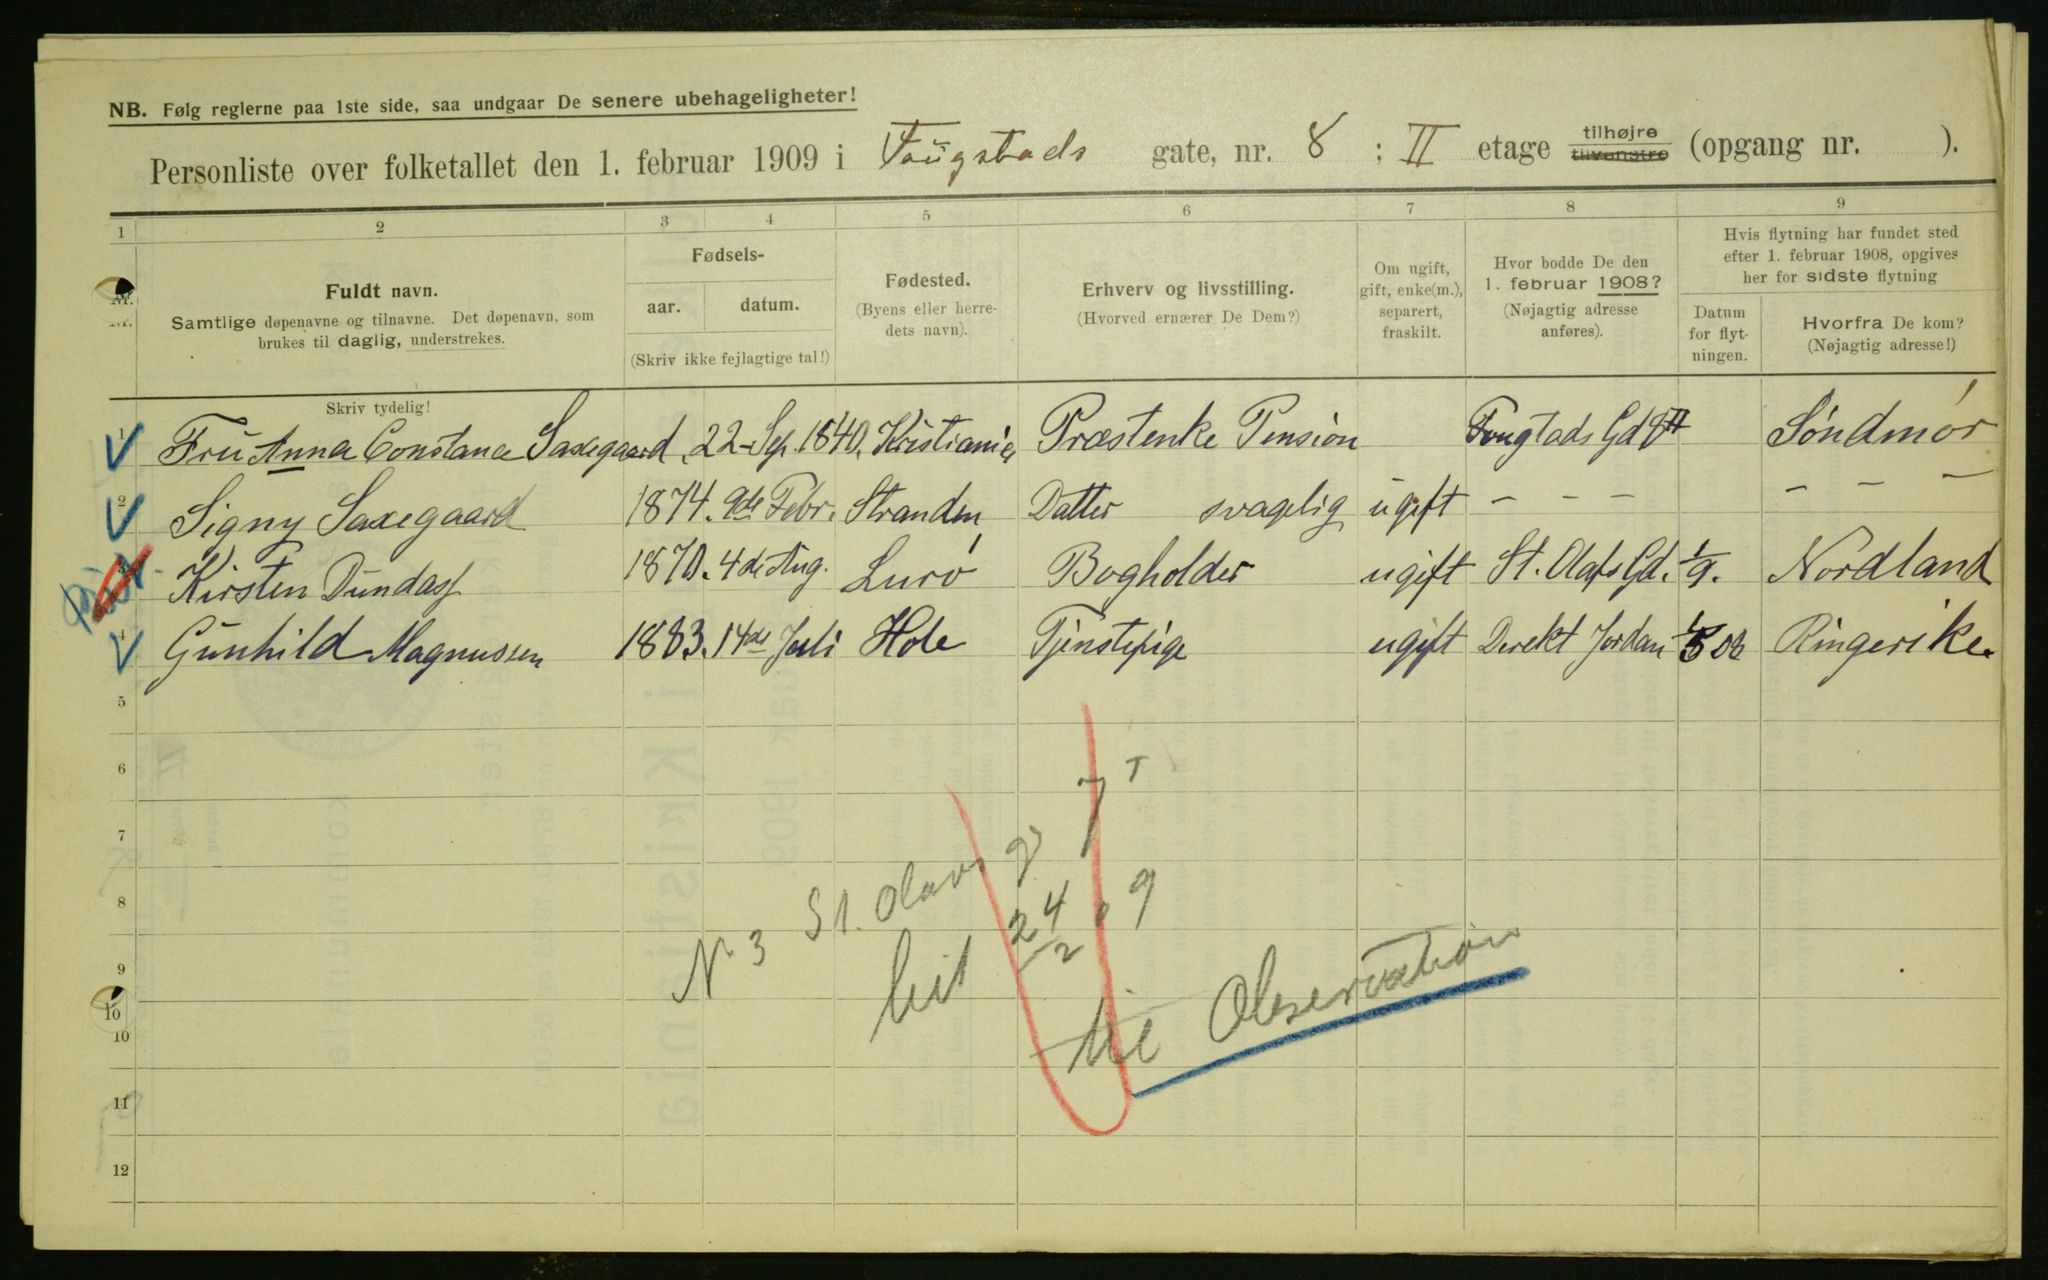 NB. Følg reglerne paa 1ste side, saa undgaar De senere ubehageligheter!
Personliste over folketallet den 1. februar 1909 i Fougstads gate, nr. 8 ; II etage tilhøjre tilvenstre (opgang nr. ).
1 2 3 4 5 6 7 8 9
Nr. Fuldt navn. Samtlige døpenavne og tilnavne. Det døpenavn, som brukes til daglig, understrekes.
Fødsels- aar. datum. (Skriv ikke fejlagtige tal!)
Fødested. (Byens eller herredets navn).
Erhverv og livsstilling. (Hvorved ernærer De Dem?)
Om ugift, gift, enke(m.), separert, fraskilt.
Hvor bodde De den 1. februar 1908? (Nøjagtig adresse anføres).
Hvis flytning har fundet sted efter 1. februar 1908, opgives her for sidste flytning
Datum for flytningen.
Hvorfra De kom? (Nøjagtig adresse!)
Skriv tydelig!
1 Fru Anna Constance Saxegaard, 22 Sep. 1840. Kristiania Præstenke Pension Fougtads Gd 8 II Søndmør
2 Signy Saxegaard 1874. 9de Febr. Stranden Datter svagelig ugift - - - - - -
3 Kirsten Dundas 1870. 4de Aug. Lurö Bogholder ugift St. Olafs Gd. 1/9. Nordland
4 Gunhild Magnussen 1883. 14de Juli Hole Tjenstepige ugift Derekt Jordan 08 Ringerike.
5
6
7
8
9
10
10
11
12
N 3 St. Olavs g 7 I
24/2 09
til Observation